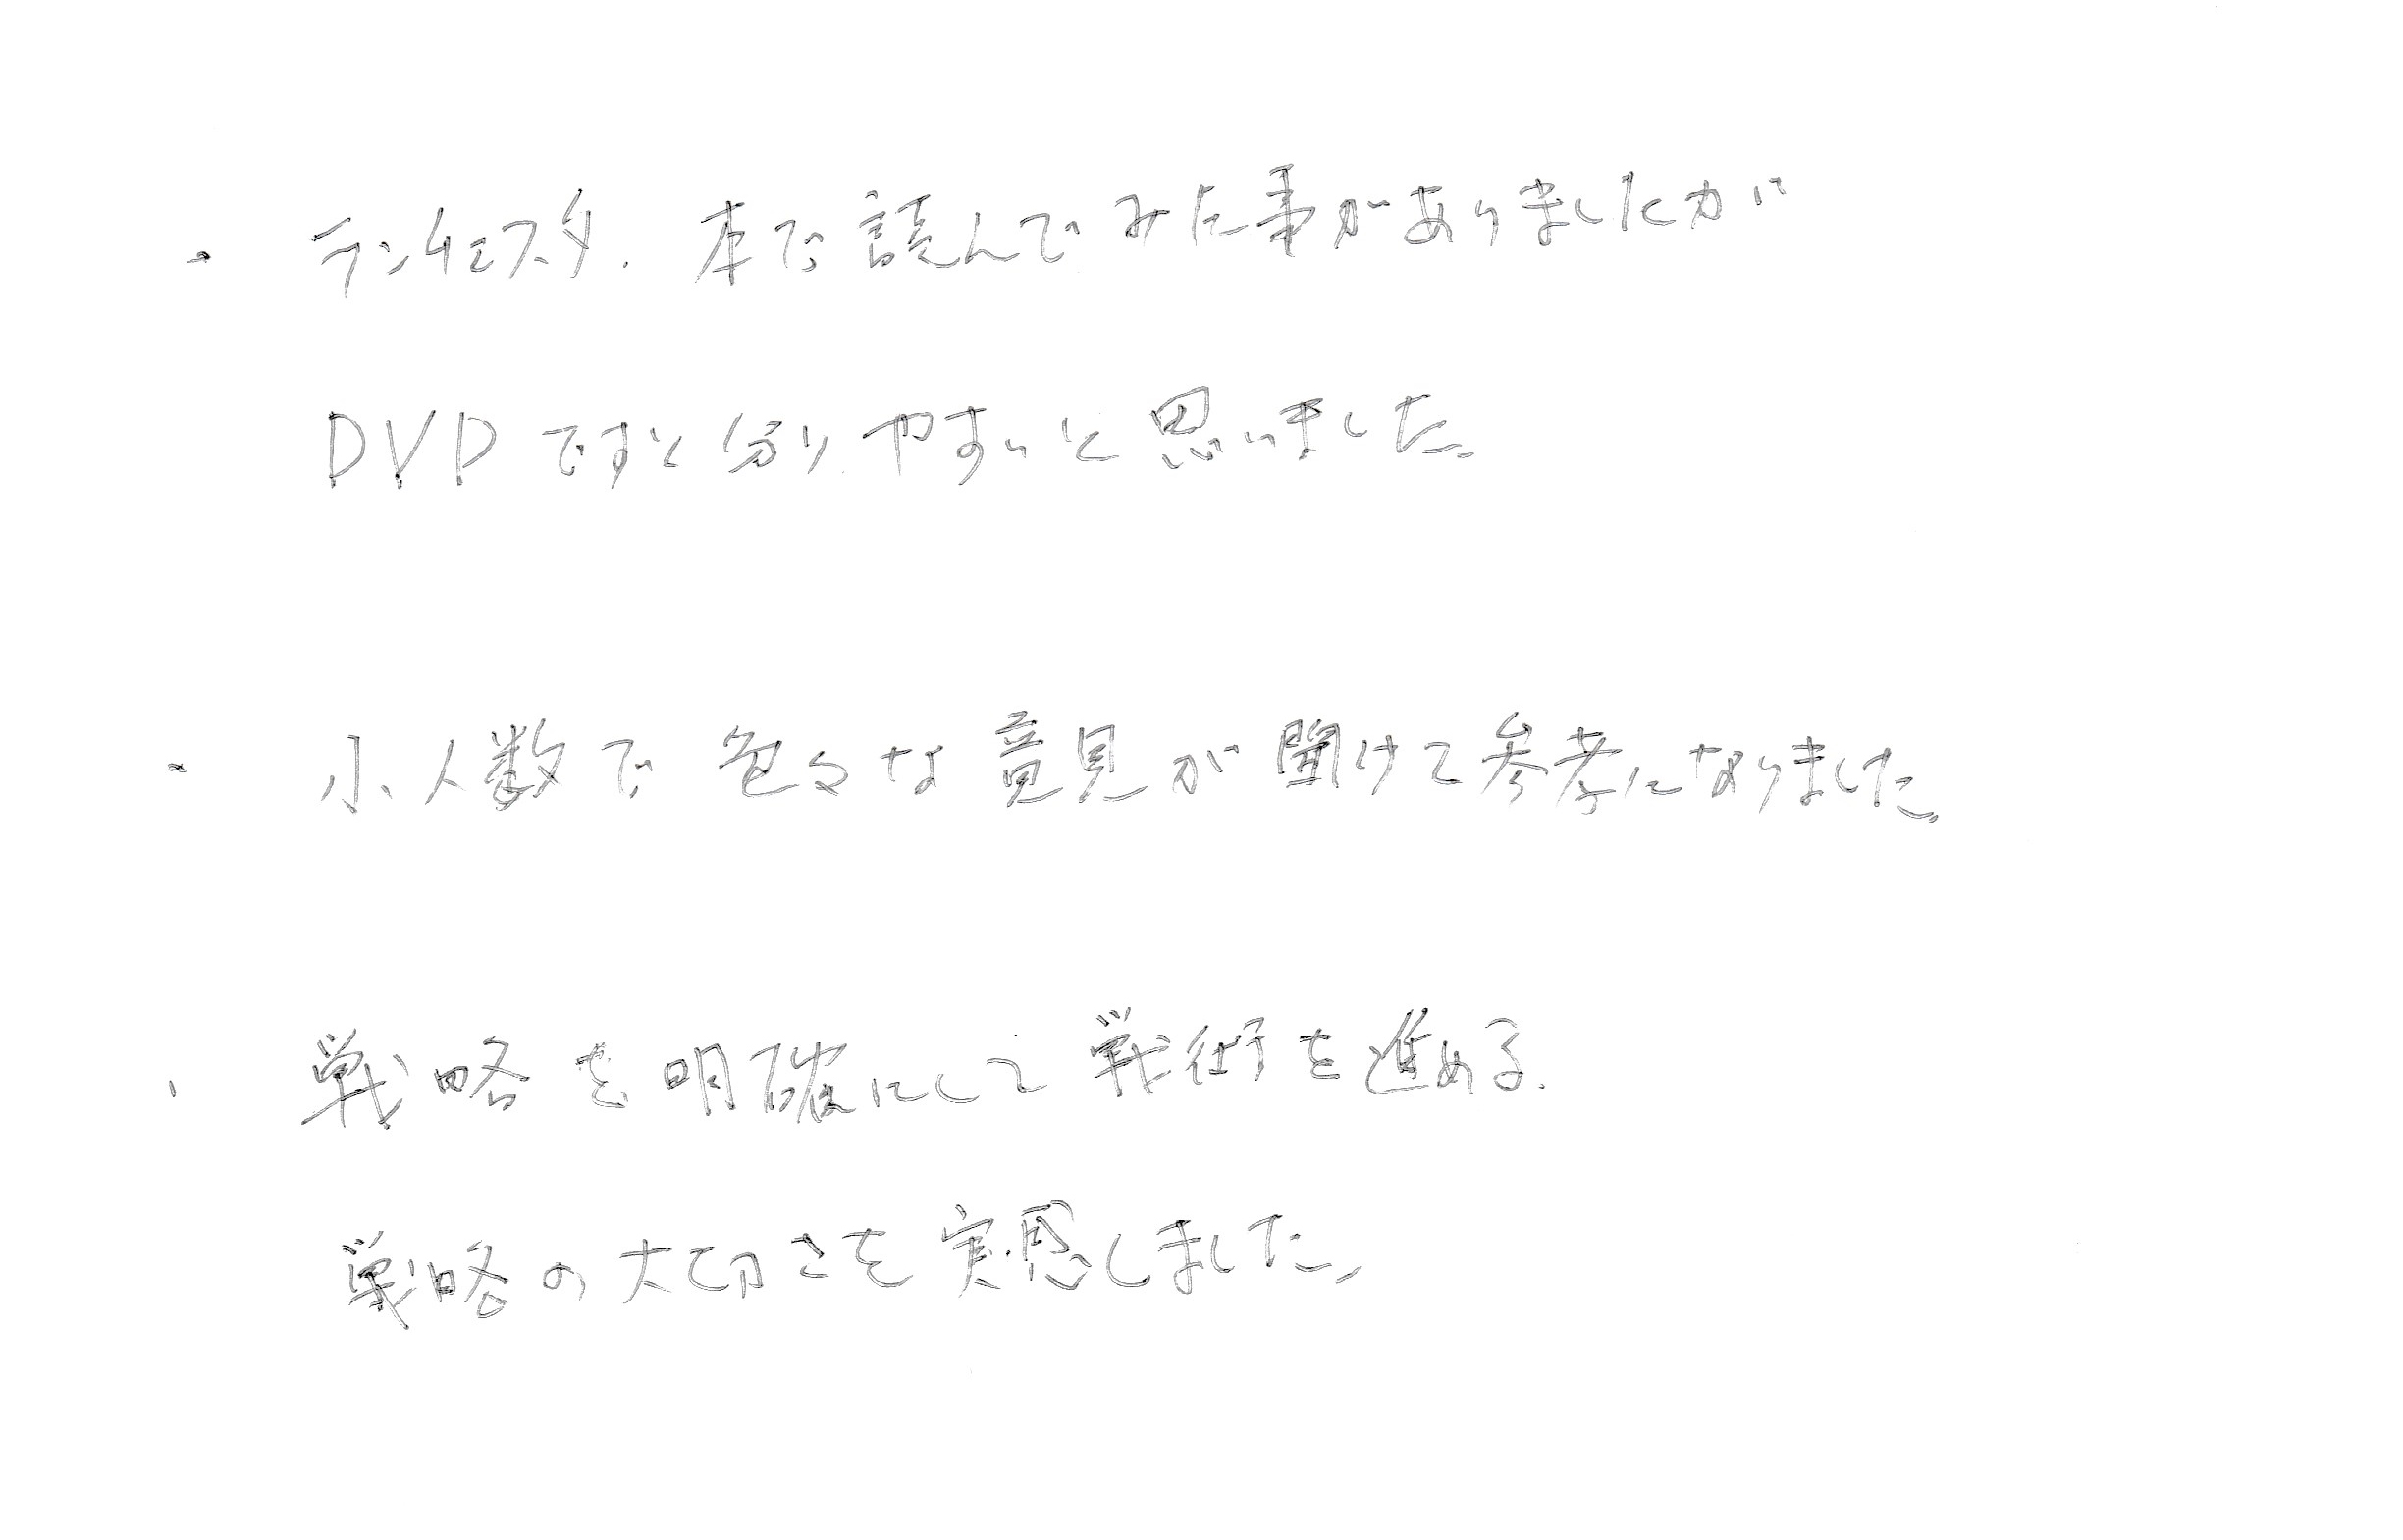 ・ランチェスタ. 本で読んでみた事がありましたが
DVDですと分りやすいと思いました。
・小人数で色々な意見が聞けて参考になりました。
・戦略を明確にして戦術を進める.
戦略の大切さを実感しました。